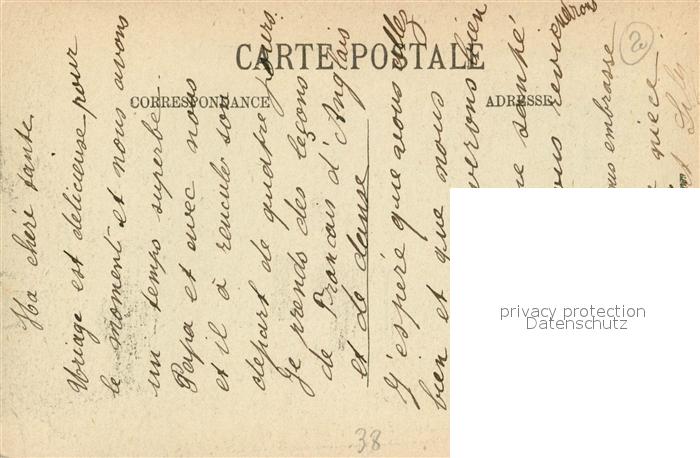 CARTE POSTALE
CORRESPONDANCE
ADRESSE
2
Ma chère tante
Uriage est délicieuse pour
le moment et nous avons
un temps superbe.
Papa et avec nous
et il à reculé son
départ de quatre jours.
Je prends des leçons
de Francais d'Anglais
et de danse
J'espère que vous allez
bien et que nous
verons bien
santé
ous revien
drons
ous embrasse
nièce
38
privacy protection
Datenschutz